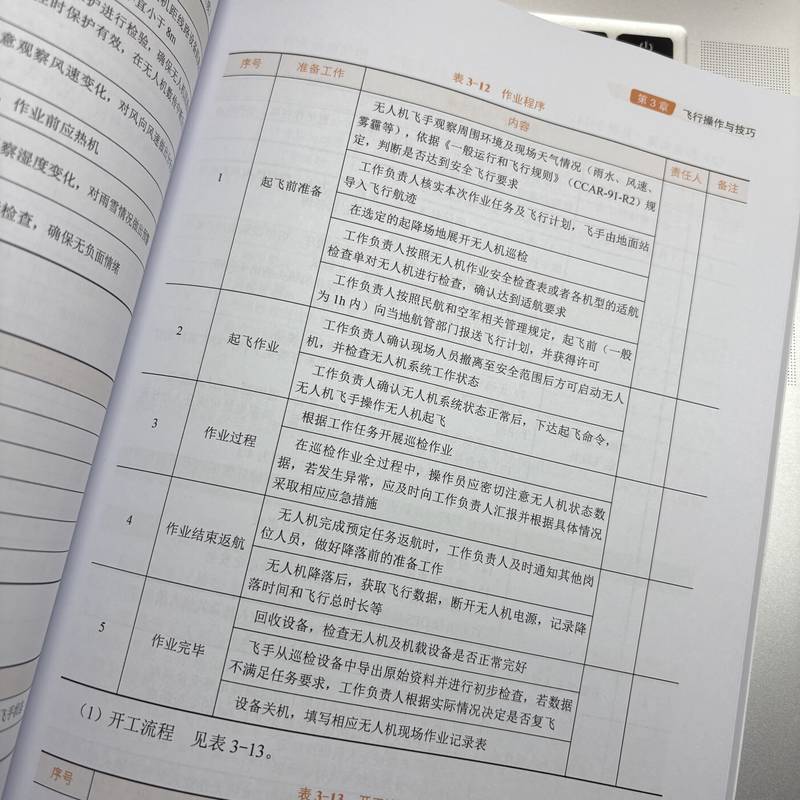 宜小于 8m
护进行检验，确保无人机
时保护有效，在无人机数传
意观察风速变化，对风向风速做出
作业前应热机
察湿度变化，对雨雪情况做出
检查，确保无负面情绪
第 3 章 飞行操作与技巧
表 3-12 作业程序
序号 准备工作 内容 责任人 备注
1 起飞前准备
无人机飞手观察周围环境及现场天气情况（雨水、风速、
雾霾等），依据《一般运行和飞行规则》（CCAR-91-R2）规
定，判断是否达到安全飞行要求
工作负责人核实本次作业任务及飞行计划，飞手由地面站
导入飞行航迹
在选定的起降场地展开无人机巡检
工作负责人按照无人机作业安全检查表或者各机型的适航
检查单对无人机进行检查，确认达到适航要求
工作负责人按照民航和空军相关管理规定，起飞前（一般
为 1h 内）向当地航管部门报送飞行计划，并获得许可
2 起飞作业
工作负责人确认现场人员撤离至安全范围后方可启动无人
机，并检查无人机系统工作状态
工作负责人确认无人机系统状态正常后，下达起飞命令，
无人机飞手操作无人机起飞
3 作业过程
根据工作任务开展巡检作业
在巡检作业全过程中，操作员应密切注意无人机状态数
据，若发生异常，应及时向工作负责人汇报并根据具体情况
采取相应应急措施
4 作业结束返航
无人机完成预定任务返航时，工作负责人及时通知其他岗
位人员，做好降落前的准备工作
5 作业完毕
无人机降落后，获取飞行数据，断开无人机电源，记录降
落时间和飞行总时长等
回收设备，检查无人机及机载设备是否正常完好
飞手从巡检设备中导出原始资料并进行初步检查，若数据
不满足任务要求，工作负责人根据实际情况决定是否复飞
设备关机，填写相应无人机现场作业记录表
（1）开工流程 见表 3-13。
表 3-13
序号